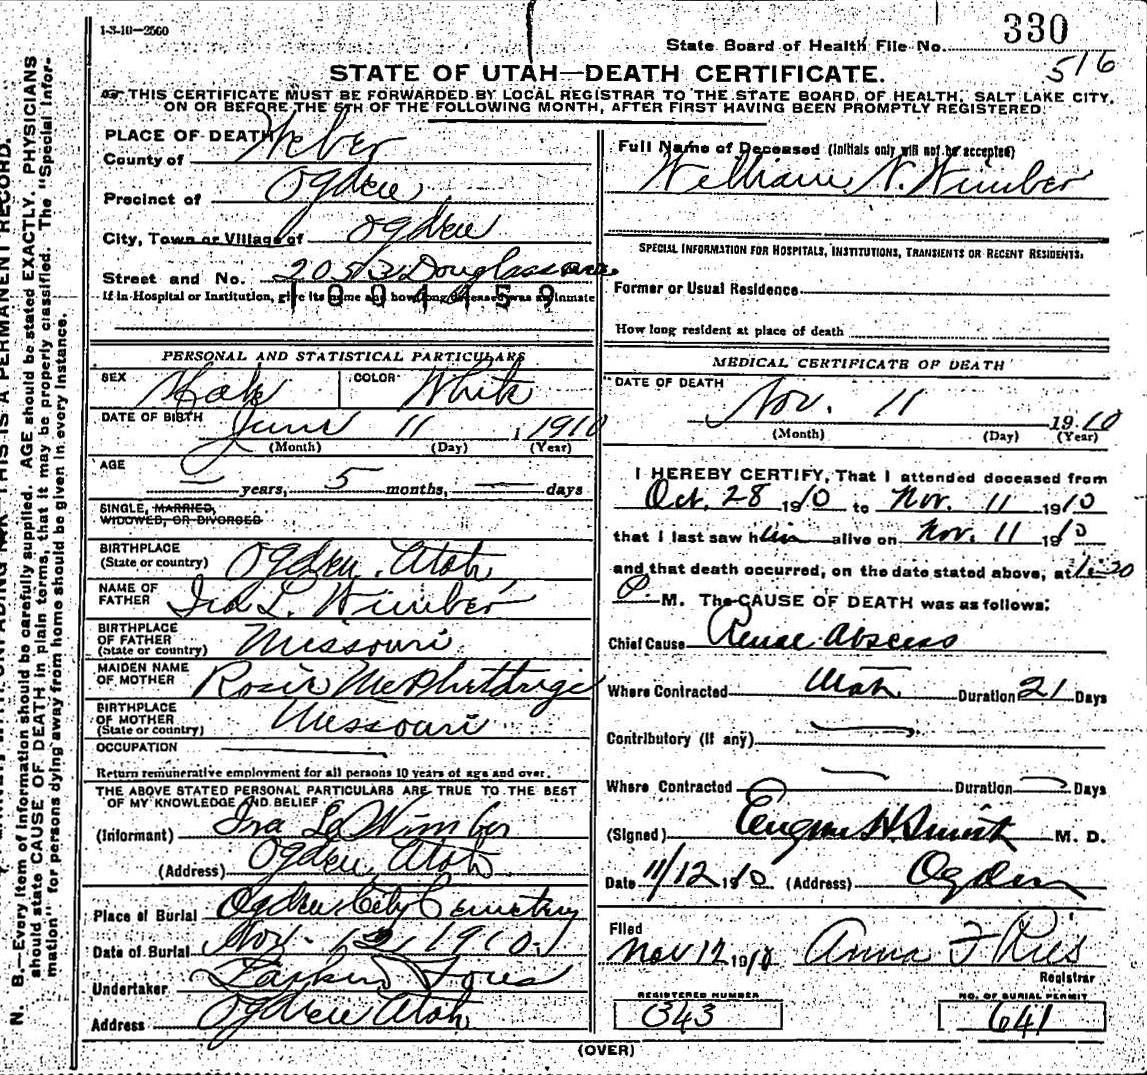 1-3-10-2560
State Board of Health File No. 330
516
STATE OF UTAH—DEATH CERTIFICATE.
THIS CERTIFICATE MUST BE FORWARDED BY LOCAL REGISTRAR TO THE STATE BOARD OF HEALTH, SALT LAKE CITY,
ON OR BEFORE THE 5TH OF THE FOLLOWING MONTH, AFTER FIRST HAVING BEEN PROMPTLY REGISTERED.
PLACE OF DEATH
County of Weber
Precinct of Ogden
City, Town or Village of Ogden
Street and No. 2053 Douglas ave
If in Hospital or Institution, give its name and how long deceased was an inmate
PERSONAL AND STATISTICAL PARTICULARS
SEX Male COLOR White
DATE OF BIRTH June 11, 1910
(Month) (Day) (Year)
AGE
— years, 5 months, — days
SINGLE, MARRIED,
WIDOWED, OR DIVORCED
BIRTHPLACE
(State or country) Ogden, Utah
NAME OF
FATHER Ira L. Wimber
BIRTHPLACE
OF FATHER
(State or country) Missouri
MAIDEN NAME
OF MOTHER Rosie
BIRTHPLACE
OF MOTHER
(State or country) Missouri
OCCUPATION
Return remunerative employment for all persons 10 years of age and over.
THE ABOVE STATED PERSONAL PARTICULARS ARE TRUE TO THE BEST
OF MY KNOWLEDGE AND BELIEF
(Informant) Ira L. Wimber
(Address) Ogden, Utah
Place of Burial Ogden City Cemetery
Date of Burial Nov. 12, 1910.
Undertaker Larkin
Address Ogden Utah
Full Name of Deceased (Initials only will not be accepted)
William N. Wimber
SPECIAL INFORMATION FOR HOSPITALS, INSTITUTIONS, TRANSIENTS OR RECENT RESIDENTS.
Former or Usual Residence
How long resident at place of death
MEDICAL CERTIFICATE OF DEATH
DATE OF DEATH
Nov. 11 1910
(Month) (Day) (Year)
I HEREBY CERTIFY, That I attended deceased from
Oct. 28 1910 to Nov. 11 1910
that I last saw him alive on Nov. 11 1910
and that death occurred, on the date stated above, at
P. M. The CAUSE OF DEATH was as follows:
Chief Cause Renal Abscess
Where Contracted Utah Duration 21 Days
Contributory (if any)
Where Contracted Duration Days
(Signed) Eugene H. Smith M. D.
Date 11/12 1910 (Address) Ogden
Filed
Nov 12 1910 Anna F Ries
Registrar
REGISTERED NUMBER NO. OF BURIAL PERMIT
343 641
(OVER)
THIS IS A PERMANENT RECORD.
N. B.—Every item of information should be carefully supplied. AGE should be stated EXACTLY. PHYSICIANS
should state CAUSE OF DEATH in plain terms, that it may be properly classified. The "Special Infor-
mation" for persons dying away from home should be given in every instance.